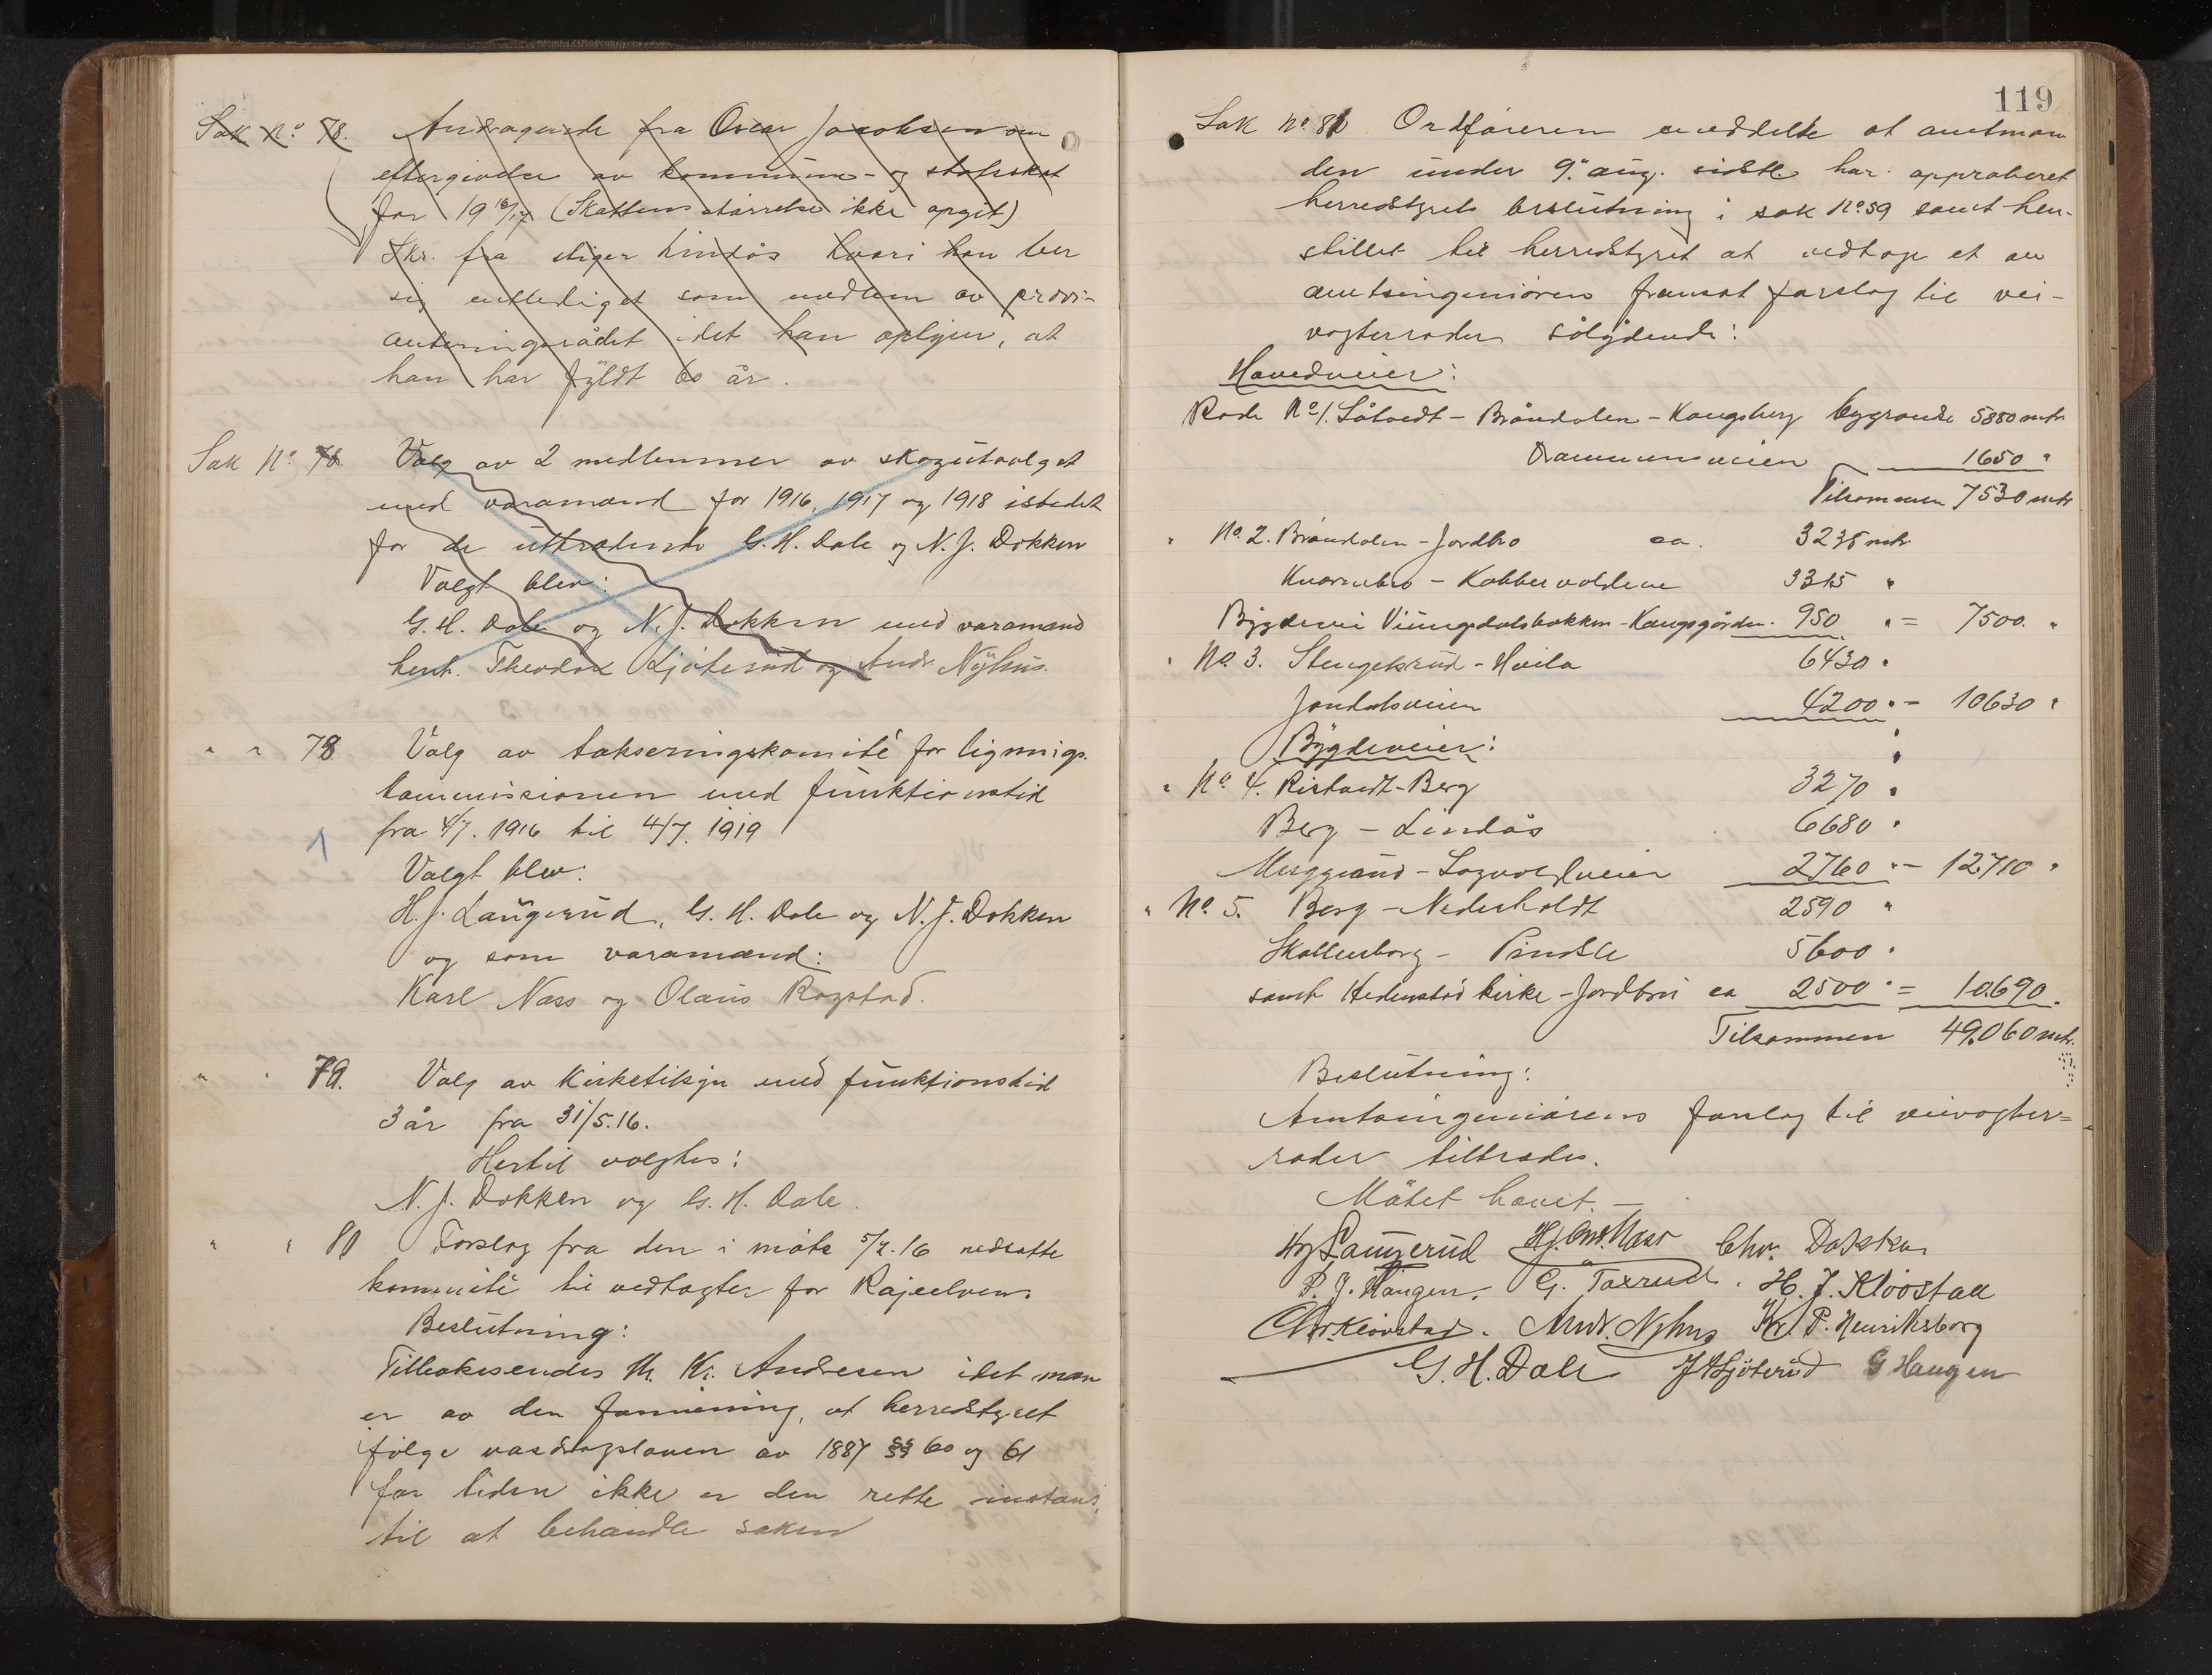 Sak No. 78. Andragende fra Oscar Jacobsen om
eftergivelse av kommune- og statsskat
for 1916/17 (Skattens størrelse ikke opgit)
Skr. fra stiger Lindås hvori han ber
sig entlediget som medlem av provi-
anteringsrådet idet han oplyser, at
han har fyldt 60 år.
Sak No. 78. Valg av 2 medlemmer av skogutvalget
med varamænd for 1916, 1917 og 1918 istedet
for de uttrædende G. H. Dale og N. J. Dokken
Valgt blev:
G. H. Dale og N. J. Dokken med varamænd
henh. Theodor Ljøterud og Andr. Nyhus.
" " 78 Valg av takseringskomité for lignings-
kommissionen med funktionstid
fra 4/7. 1916 til 4/7. 1919
Valgt blev:
H. J. Laugerud, G. H. Dale og N. J. Dokken
og som varamænd:
Karl Næss og Olaus Rogstad.
" " 79. Valg av Kirketilsyn med funktionstid
3 år fra 31/5.16.
Hertil valgtes:
N. J. Dokken og G. H. Dale.
" " 80 Forslag fra den i møte 5/2.16 nedsatte
kommité til vedtægter for
Beslutning:
Tilbakesendes Th. Kr. Andresen idet man
er av den formening, at herredstyret
følge vasdragsloven av 1887 §§ 60 og 61
for tiden ikke er den rette instans
til at behandle saken
119
Sak No. 81 Ordføreren meddelte at amtman
den under 9. aug. sidstl. har approberet
herredstyrets beslutning i sak No. 59 samt hen-
stillet til herredstyret at vedtage et av
amtsingeniøren fremsat forslag til vei-
vogterroder sålydende:
Hovedveier:
Rode No. 1. Såtvedt - Bråndalen - Kongsberg bygrændse 5880 mtr.
Drammensveien 1650 "
Tilsammen 7530 mtr
" No. 2. Bråndalen - Jordbro ca. 3235 mtr.
Kværnbro - Kobbervoldene 3315 "
Bygdevei Viungsdalsbakken - Kongsgården. 950 " = 7500. "
" No. 3. Stengelsrud - Hvila 6430 "
Jondalsveien 4200 " - 10630 "
Bygdeveier:
" No. 4. Ristvedt - Berg 3270 "
Berg - Lindås 6680 "
Muggrud - Sagvoldveien 2760 " - 12710 "
" No. 5. Berg - Nederholdt 2590 "
Skollenborg - Pindsle 5600 "
samt Hedenstad kirke - Jordbru ca 2500 " = 10.690.
Tilsammen 49.060 mtr.
Beslutning:
Amtsingeniørens forslag til veivogter=
roder tiltrædes.
Møtet hævet. -
H J Laugerud Hj. Chr. Næss Chr. Dokken
P. J. Haugen. G. Taxrud. H. J. Kløvstad
Chr. Kløvstad. Andr. Nyhus Kr. P. Henriksborg
G. H. Dale J A Ljøterud G Haugen